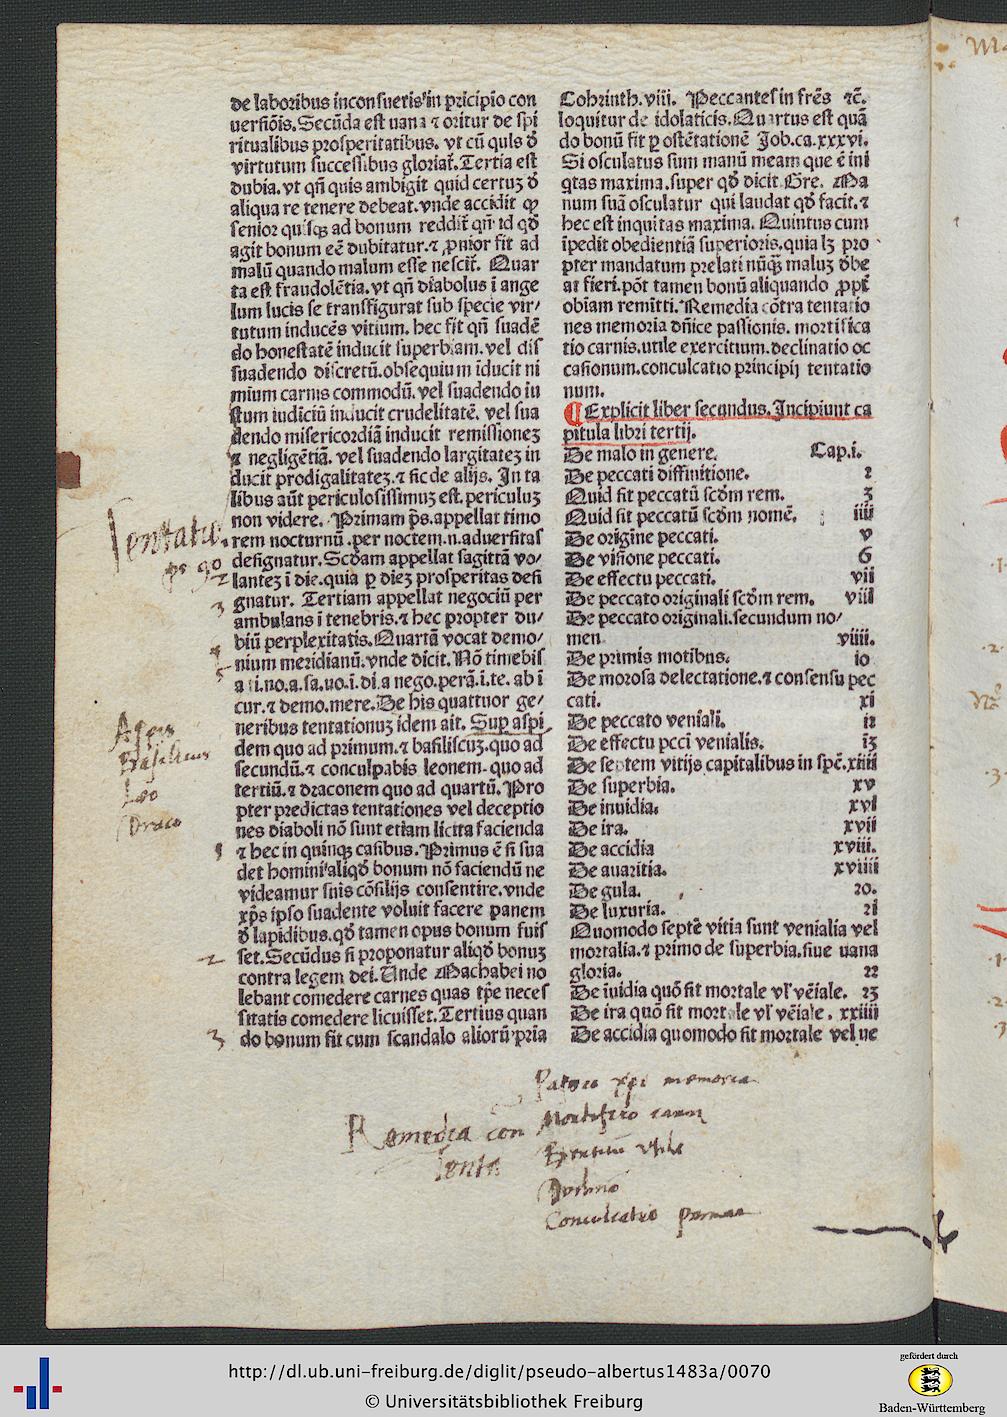 de laboribus inconsuetis in pricipio con
uersiōis. Secūda est uana ⁊ oritur de spi
ritualibus prosperitatibus. vt cū quis d̄
virtutum successibus gloriat̄. Tertia est
dubia. vt qn̄ quis ambigit quid certuꝫ d̄
aliqua re tenere debeat. vnde accidit ꝙ
senior quisqꝫ ad bonum reddit̄ qn̄ id qd̄
agit bonum eē dubitatur. ⁊ ꝓnior fit ad
malū quando malum esse nescit̄. Quar
ta est fraudolētia. vt qn̄ diabolus ī ange
lum lucis se transfigurat sub specie vir/
tutum inducēs vitium. hec fit qn̄ suadē
do honestatē inducit superbiam. vel dis
suadendo discretū. obsequium īducit ni
mium carnis commodū. vel suadendo iu
stum iudiciū inducit crudelitatē. vel sua
dendo misericordiā inducit remissioneꝫ
⁊ negligētiā. vel suadendo largitateꝫ in
ducit prodigalitateꝫ. ⁊ sic de alijs. In ta
libus aūt periculosissimuꝫ est. periculuꝫ
non videre. Primam p̄s. appellat timo
rem nocturnū. per noctem. n. aduersitas
designatur. Scd̄am appellat sagittā vo/
lanteꝫ ī die. quia ꝑ dieꝫ prosperitas desi
gnatur. Tertiam appellat negociū per
ambulans ī tenebris. ⁊ hec propter du/
biū perplexitatis. Quartā vocat demo/
nium meridianū. vnde dicit. Nō timebis
a ti. no. a. sa. uo. ī. di. a nego. perā. i. te. ab ī
cur. ⁊ demo. mere. De his quattuor ge/
neribus tentationuꝫ idem ait. Suꝑ aspi
dem quo ad primum. ⁊ basiliscuꝫ. quo ad
secundū. ⁊ conculpabis leonem. quo ad
tertiū. ⁊ draconem quo ad quartū. Pro
pter predictas tentationes vel deceptio
nes diaboli nō sunt etiam licita facienda
⁊ hec in quinqꝫ casibus. Primus ē si sua
det homini aliqd̄ bonum nō faciendū ne
videamur suis cōsilijs consentire. vnde
xp̄s ipso suadente voluit facere panem
d̄ lapidibus. qd̄ tamen opus bonum fuis
set. Secūdus si proponatur aliqd̄ bonuꝫ
contra legem dei. Unde Machabei no
lebant comedere carnes quas tp̄e neces
sitatis comedere licuisset. Tertius quan
do bonum fit cum scandalo aliorū. pria
Cohrinth. viii. Peccantes in frēs ⁊c̄.
loquitur de idolaticis. Quartus est quā
do bonū fit ꝑ ostētationē Job. ca. xxxvi.
Si osculatus sum manū meam que ē ini
qtas maxima. super qd̄ dicit Gre. Ma
num suā osculatur qui laudat qd̄ facit. ⁊
hec est inquitas maxima. Quintus cum
īpedit obedientiā superioris. quia lꝫ pro
pter mandatum prelati nūqꝫ maluꝫ d̄be
at fieri. pōt tamen bonū aliquando ꝓpt̄
obiam remitti. Remedia cōtra tentatio
nes memoria dn̄ice passionis. mortifica
tio carnis. utile exercitium. declinatio oc
casionum. conculcatio principij tentatio
num.
¶ Explicit liber secundus. Incipiunt ca
pitula libri tertij.
De malo in genere. Cap. i.
De peccati diffinitione. 2
Quid sit peccatū scd̄m rem. 3
Quid sit peccatū scd̄m nomē. iiii
De origine peccati. v
De visione peccati. 6
De effectu peccati. vii
De peccato originali scd̄m rem. viii
De peccato originali. secundum no/
men viiii.
De primis motibus. io
De morosa delectatione. ⁊ consensu pec
cati. xi
De peccato veniali. i2
De effectu pcci venialis. i3
De septem vitijs capitalibus in spē. xiiii
De superbia. xv
De inuidia. xvi
De ira. xvii
De accidia xviii.
De auaritia. xviiii
De gula. 20.
De luxuria. 2i
Quomodo septē vitia sunt venialia vel
mortalia. ⁊ primo de superbia. siue uana
gloria. 22
De īuidia quō sit mortale vl' vēiale. 23
De ira quō sit mortale vl' vēiale. xxiiii
De accidia quomodo sit mortale vel ue
2
3
4
5
Basiliscus
Leo
Draco
1
2
3
Remedia con
memoria
Conculcatio
http://dl.ub.uni-freiburg.de/diglit/pseudo-albertus1483a/0070
© Universitätsbibliothek Freiburg
gefördert durch
Baden-Württemberg